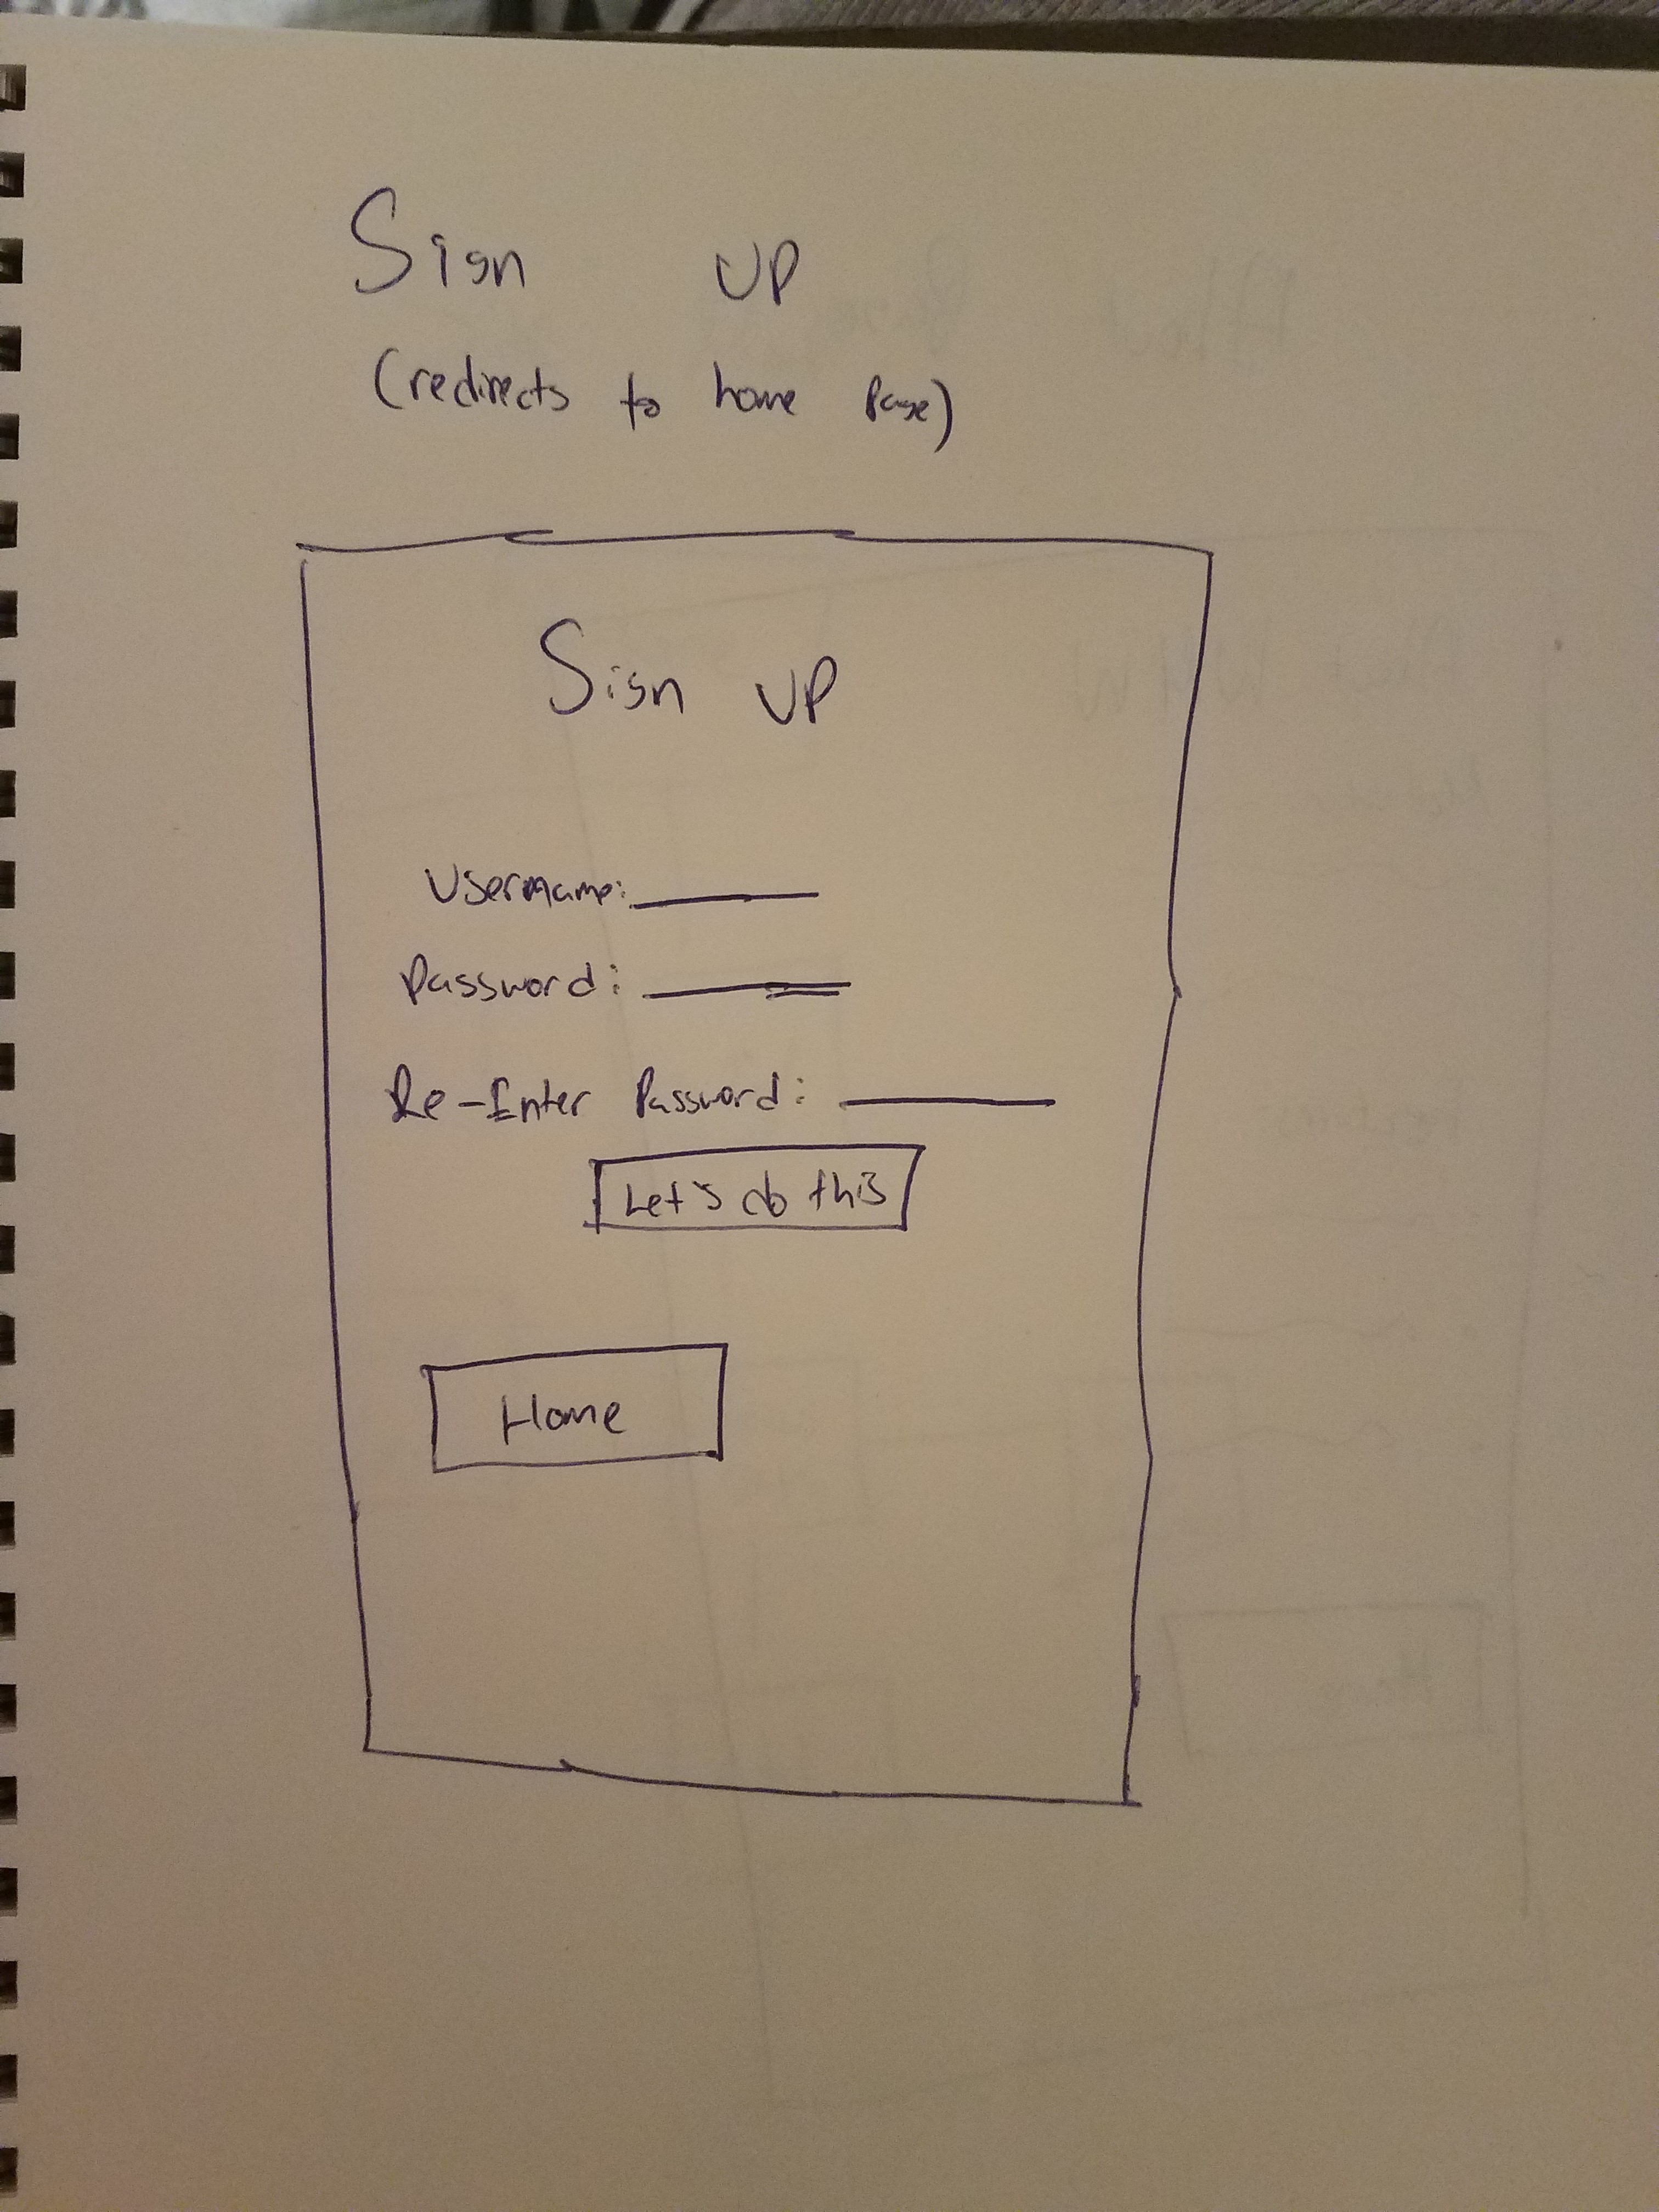 Sign UP
(redirects to home Page)
Sign UP
Username:
Password:
Re-Enter Password:
Let's do this
Home